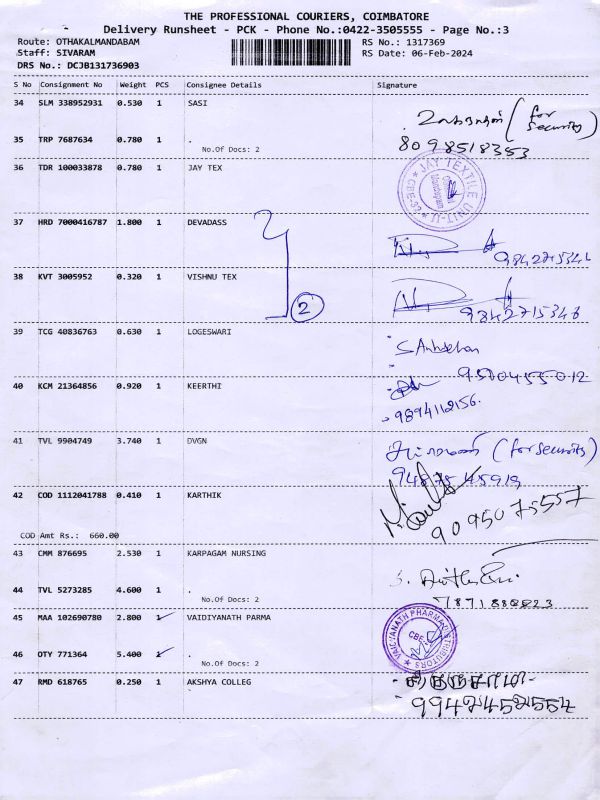 THE PROFESSIONAL COURIERS, COIMBATORE
Delivery Runsheet - PCK - Phone No.:0422-3505555 - Page No.:3
Route: OTHAKALMANDABAM
RS No.: 1317369
Staff: SIVARAM
RS Date: 06-Feb-2024
DRS No.: DCJB131736903
S No Consignment No Weight PCS Consignee Details Signature
34 SLM 338952931 0.530 1 SASI
(for security)
35 TRP 7687634 0.780 1 .
No.Of Docs: 2
8098518353
36 TDR 100033878 0.780 1 JAY TEX
JAY TEXTILE UNIT-II
37 HRD 7000416787 1.800 1 DEVADASS
38 KVT 3005952 0.320 1 VISHNU TEX
2
39 TCG 40836763 0.630 1 LOGESWARI
40 KCM 21364856 0.920 1 KEERTHI
9894112156
41 TVL 9904749 3.740 1 DVGN
(for security)
42 COD 1112041788 0.410 1 KARTHIK
9095075557
COD Amt Rs.: 660.00
43 CMM 876695 2.530 1 KARPAGAM NURSING
44 TVL 5273285 4.600 1 .
No.Of Docs: 2
45 MAA 102690780 2.800 1 VAIDIYANATH PARMA
46 OTY 771364 5.400 1 .
No.Of Docs: 2
47 RMD 618765 0.250 1 AKSHYA COLLEG
9942452554